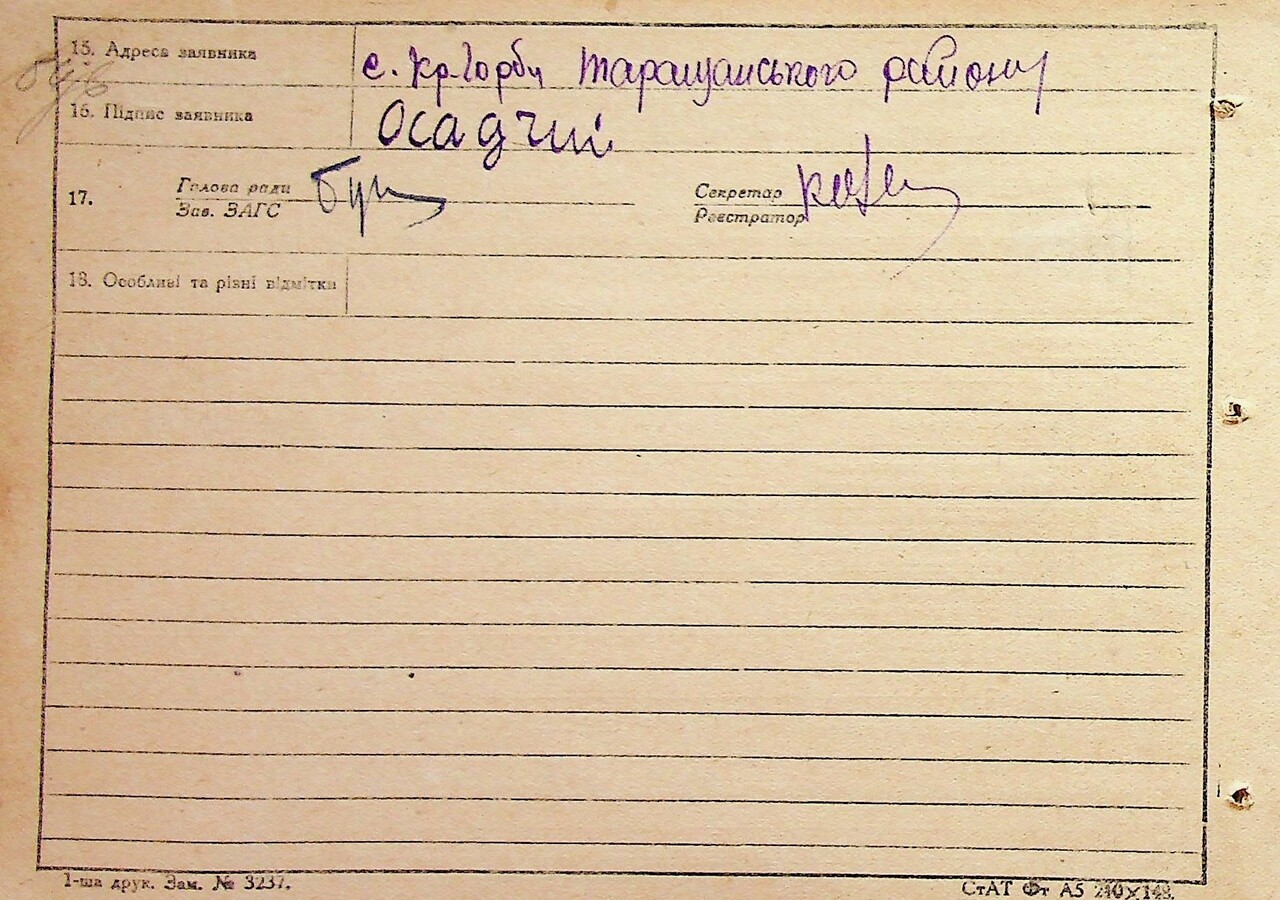 15. Адреса заявника с. Кр-Горби Таращанського району
був
16. Підпис заявника Осадчий
17. Голова ради Секретар
Зав. ЗАГС Реєстратор
18. Особливі та різні відмітки
1-ша друк. Зам. № 3237. СтАТ Фт А5 210×148.